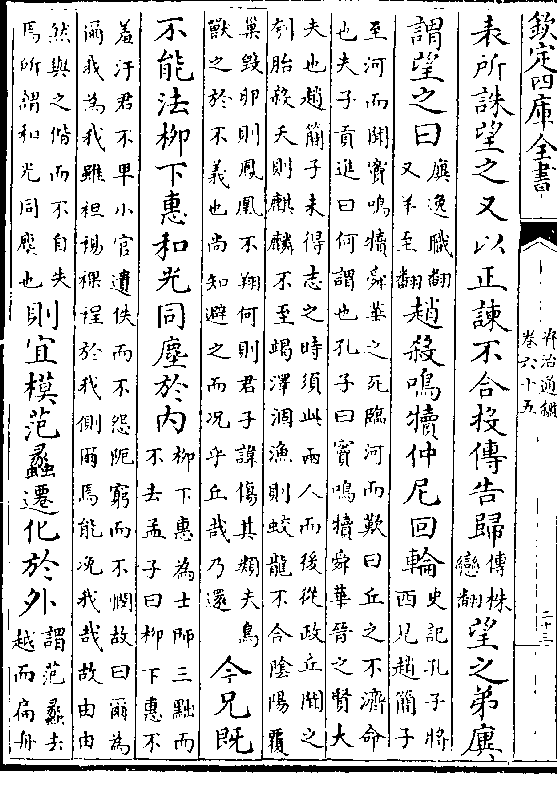 欽定四庫全書
資治通鑑
卷六十五
二十三
表所誅望之又以正諫不合投傳告歸
傳株
戀翻
望之弟廙
謂望之曰
廙逸職翻
又羊至翻
趙殺鳴犢仲尼回輪
史記孔子將
西見趙簡子
至河而聞竇鳴犢舜華之死臨河而歎曰丘之不濟命
也夫子貢進曰何謂也孔子曰竇鳴犢舜華晉之賢大
夫也趙簡子未得志之時須此兩人而後從政丘聞之
刳胎殺夭則麒麟不至竭澤涸漁則蛟龍不合陰陽覆
巢毀卵則鳳凰不翔何則君子諱傷其類夫鳥
獸之於不義也尚知避之而况乎丘哉乃還
今兄既
不能法柳下惠和光同塵於内
柳下惠為士師三黜而
不去孟子曰柳下惠不
羞汙君不卑小官遺佚而不怨阨窮而不憫故曰爾為
爾我為我雖袒裼裸裎於我側爾焉能浼我哉故由由
然與之偕而不自失
焉所謂和光同塵也
則宜模范蠡遷化於外
謂范蠡去
越而扁舟